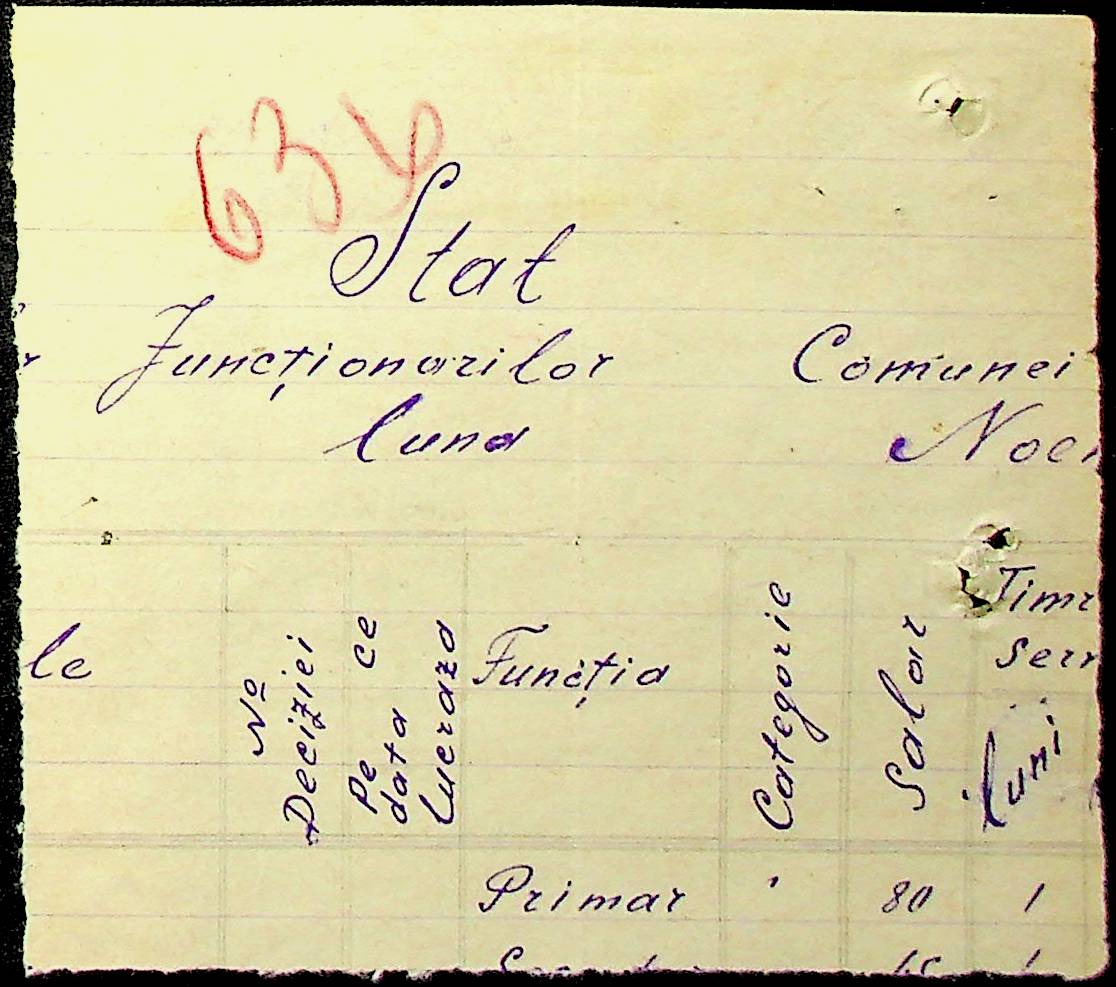 636
Stat
Funcționarilor Comunei
luna Noe
le
No
Deciziei
Pe ce
data
lucraza
Funcția
Categorie
Salar
Tim
Ser
luni
Primar " 80 1